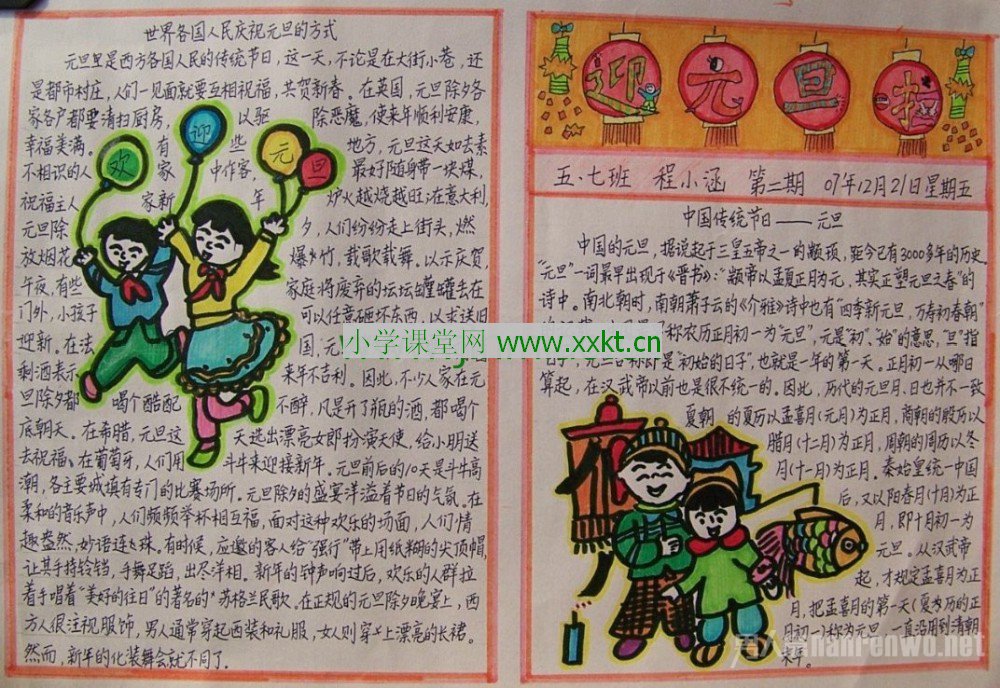 世界各国人民庆祝元旦的方式
元旦里是西方各国人民的传统节日，这一天，不论是在大街小巷，还
是都市村庄，人们一见面就要互相祝福，共贺新春。在英国，元旦除夕各
家各户都要清扫厨房，以驱除恶魔，使来年顺利安康，
幸福美满。有些地方，元旦这天如去素
不相识的人家中作客，最好随身带一块煤，
祝福主人家新年炉火越烧越旺。在意大利，
元旦除夕，人们纷纷走上街头，燃
放烟花爆竹，载歌载舞。以示庆贺，
午夜，有些家庭将废弃的坛坛罐罐丢在
门外，小孩子可以任意砸坏东西，以求送旧
迎新。在法国，元
剩酒表示来年不吉利。因此，不少人家在元
旦除夕都喝个酩酊不醉，凡是开了瓶的酒，都喝个
底朝天。在希腊，元旦这天选出漂亮女郎扮演天使，给小朋送
去祝福。在葡萄牙，人们用斗牛来迎接新年。元旦前后的10天是斗牛高
潮，各主要城填有专门的比赛场所。元旦除夕的盛宴洋溢着节日的气氛。在
柔和的音乐声中，人们频频举杯相互福，面对这种欢乐的场面，人们情
趣盎然，妙语连珠。有时候，应邀的客人给“强行”带上用纸糊的尖顶帽，
让其手持铃铛，手舞足蹈，出尽洋相。新年的钟声响过后，欢乐的人群拉
着手唱着“美好的往日”的著名的苏格兰民歌。在正规的元旦除夕晚宴上，西
方人很注视服饰，男人通常穿起西装和礼服，女人则穿上漂亮的长裙。
然而，新年的化装舞会就不同了。
欢
迎
元
旦
迎元旦
五·七班 程小涵 第二期 07年12月21日星期五
中国传统节日——元旦
中国的元旦，据说起于三皇五帝之一的颛顼，距今已有3000多年的历史
“元旦”一词最早出现于《晋书》：“颛帝以孟夏正月为元，其实正塑元旦之春”的
诗中。南北朝时，南朝萧子云的《介雅》诗中也有“四季新元旦，万寿初春朝”
称农历正月初一为“元旦”，元是“初”、“始”的意思，“旦”指
“日子”，元旦合称即是“初始的日子”，也就是一年的第一天。正月初一从哪日
算起，在汉武帝以前也是很不统一的。因此，历代的元旦月、日也并不一致
夏朝的夏历以孟喜月(元月)为正月，商朝的殷历以
腊月(十二月)为正月，周朝的周历以冬
月(十一月)为正月。秦始皇统一中国
后，又以阳春月(十月)为正
月，即十月初一为
元旦。从汉武帝
起，才规定孟喜月为正
月，把孟喜月的第一天(夏历的正
月初一)称为元旦，一直沿用到清朝
末年。
小学课堂网 www.xxkt.cn
nanrenwo.net